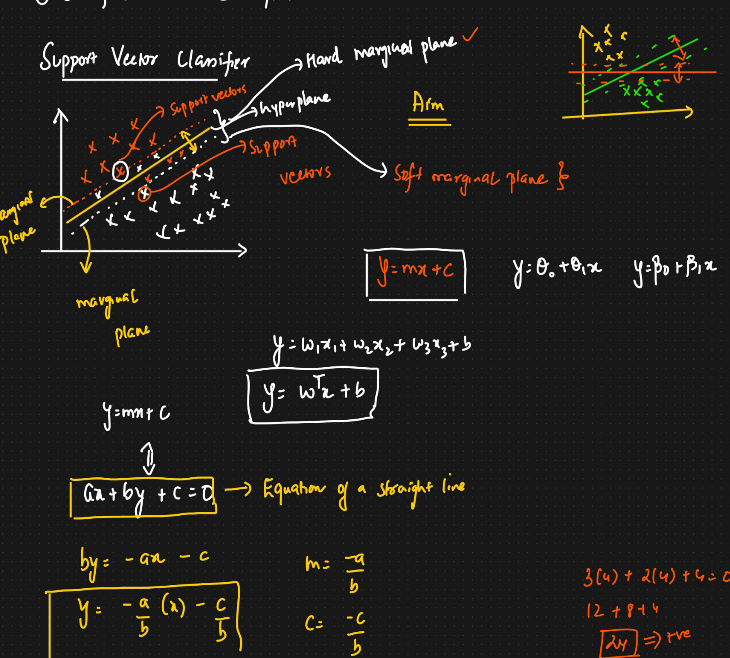 Support Vector Classifier
Hard marginal plane ✓
Support vectors
hyperplane
Aim
Support
vectors
Soft marginal plane }
plane
marginal
plane
y = mx + c
y = θ₀ + θ₁x
y = β₀ + β₁x
y = w₁x₁ + w₂x₂ + w₃x₃ + b
y = wᵀx + b
y = mx + c
ax + by + c = 0 → Equation of a straight line
by = -ax - c
m = -a/b
y = -a/b (x) - c/b
c = -c/b
3(4) + 2(4) + 4 = 0
12 + 8 + 4
24 ⇒ +ve